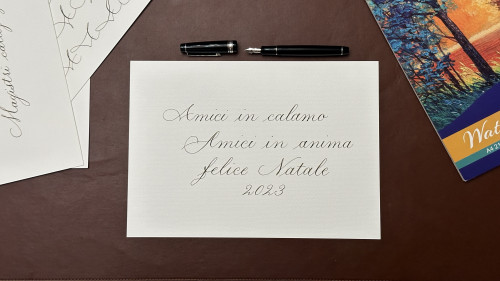 Amici in calamo
Amici in anima
felice Natale
2023
Magistri
Wat